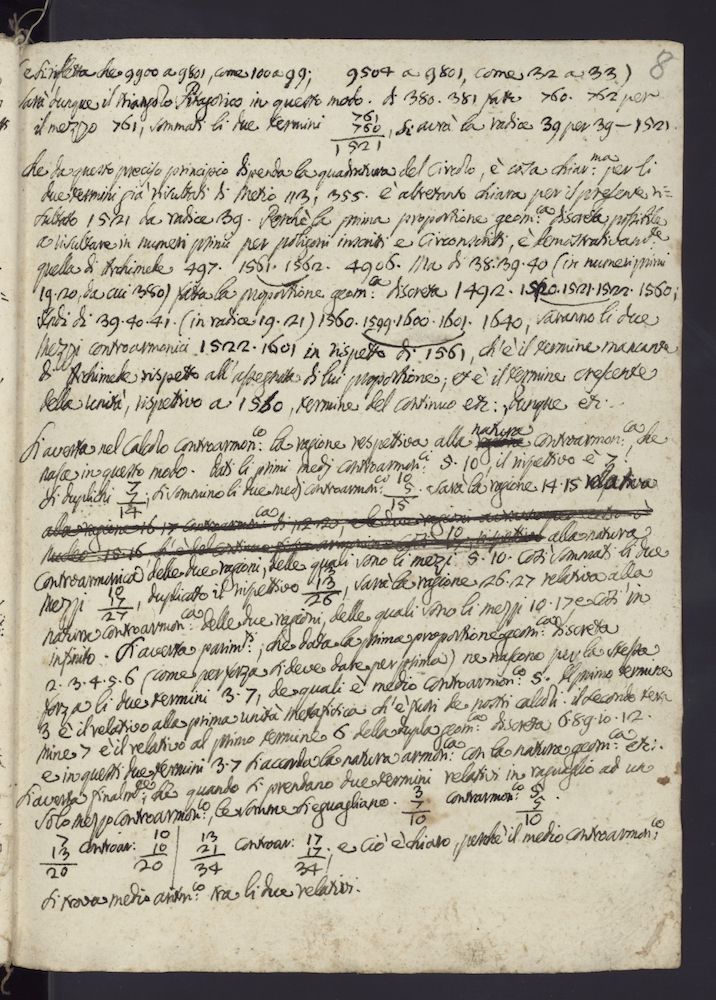 8
(e si rifletta che 9900 a 9801, come 100 a 99; 9504 a 9801, come 32 a 33)
sarà dunque il triangolo Pitagorico in questo modo. Di 380. 381 fatti 760. 762 per
il mezzo 761, sommati li due termini 761 760 1521, si avrà la radice 39 per 39 — 1521.
che da questo preciso principio dipenda la quadratura del Circolo, è cosa chiar:ma per li
due termini già risultati di Metio 113, 355. è altretanto chiara per il presente ri=
sultato 1521 da radice 39. Perchè la prima proportione geom:ca discreta possibile
a risultare in numeri primi per poligoni inscritti e Circonscritti, è demostrativam:te
quella di Archimede 497. 1561. 1562. 4906. Ma di 38. 39. 40 (in numeri primi
19. 20, da cui 380) fatta la proportione geom:ca discreta 1482. 1520. 1521. 1522. 1560;
Indi di 39. 40. 41. (in radice 19. 21) 1560. 1599. 1600. 1601. 1640, saranno li due
Mezzi controarmonici 1522. 1601 in rispetto di 1561, ch'è il termine mancante
di Archimede rispetto all'assegnata di lui proportione; et è il termine crescente
della unità, rispettivo a 1560, termine del continuo etc:, Dunque etc:
Si averta nel Calcolo Controarmon:co la ragione respettiva alla natura controarmon:ca, che
nasce in questo modo. Dati li primi medj controarmon:ci 5. 10, il rispettivo è 7.
Si duplichi 7 7 14; si sommino li due medj controarmon:ci 10 5 15. Sarà la ragione 14. 15 relativa
alla natura
Controarmonica delle due ragioni, delle quali sono li mezzi 5. 10. Così sommati li due
Mezzi 10 17 27, duplicato il rispettivo 13 13 26, sarà la ragione 26. 27 relativa alla
natura controarmon:ca delle due ragioni, delle quali sono li mezzi 10. 17 e così in
infinito. Si averta parim:te, che data la prima proportione geom:ca discreta
2. 3. 4. 5. 6 (come per forza si deve dare per prima) ne nascono per la stessa
forza li due termini 3. 7, de quali è medio controarmon:co 5. Il primo termine
3 è il relativo alla prima unità metafisica ch'è fuori de nostri calcoli. il secondo ter=
mine 7 è il relativo al primo termine 6 della dupla geom:ca discreta 6. 8. 9. 10. 12.
e in questi due termini 3. 7 si accorda la natura armon:ca con la natura geom:ca etc:.
Si averta finalm:te, che quando si prendano due termini relativi in raguaglio ad un
solo mezzo controarmon:co, le somme si eguagliano. 3 7 10 controarmon:co 5 5 10.
7 13 20 Controar: 10 10 20 | 13 21 34 Controar: 17 17 34; e ciò è chiaro, perchè il medio controarmon:co
si trova medio aritm:co tra li due relativi.